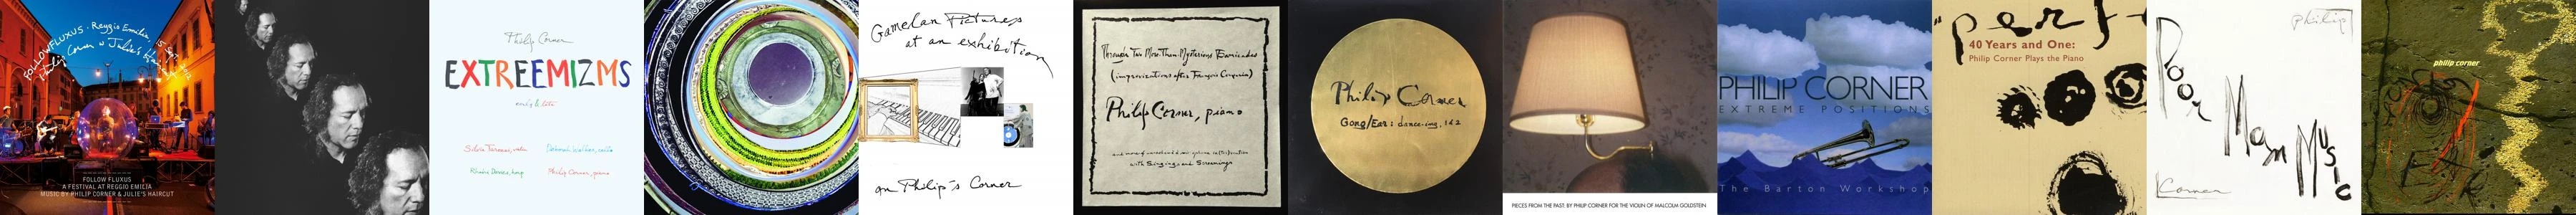 FOLLOWFLUXUS · Reggio Emilia, 15 Set. 2012
Philip Corner & Julie's Haircut
FOLLOW FLUXUS
A FESTIVAL AT REGGIO EMILIA
MUSIC BY PHILIP CORNER & JULIE'S HAIRCUT
Philip Corner
EXTREEMIZMS
early & late
Silvia Tarozzi, violin
Deborah Walker, cello
Rhodri Davies, harp
Philip Corner, piano
Gamelan Pictures
at an exhibition
on Philip's Corner
Through Two More-Than-Mysterious Barricades
(improvizations after François Couperin)
Philip Corner, piano
with Singing and Screamings
Philip Corner
Gong/Ear: dance-ing, 1 & 2
PIECES FROM THE PAST: BY PHILIP CORNER FOR THE VIOLIN OF MALCOLM GOLDSTEIN
PHILIP CORNER
EXTREME POSITIONS
The Barton Workshop
"perf
40 Years and One:
Philip Corner Plays the Piano
Philip
Poor
Man
Music
Corner
philip corner